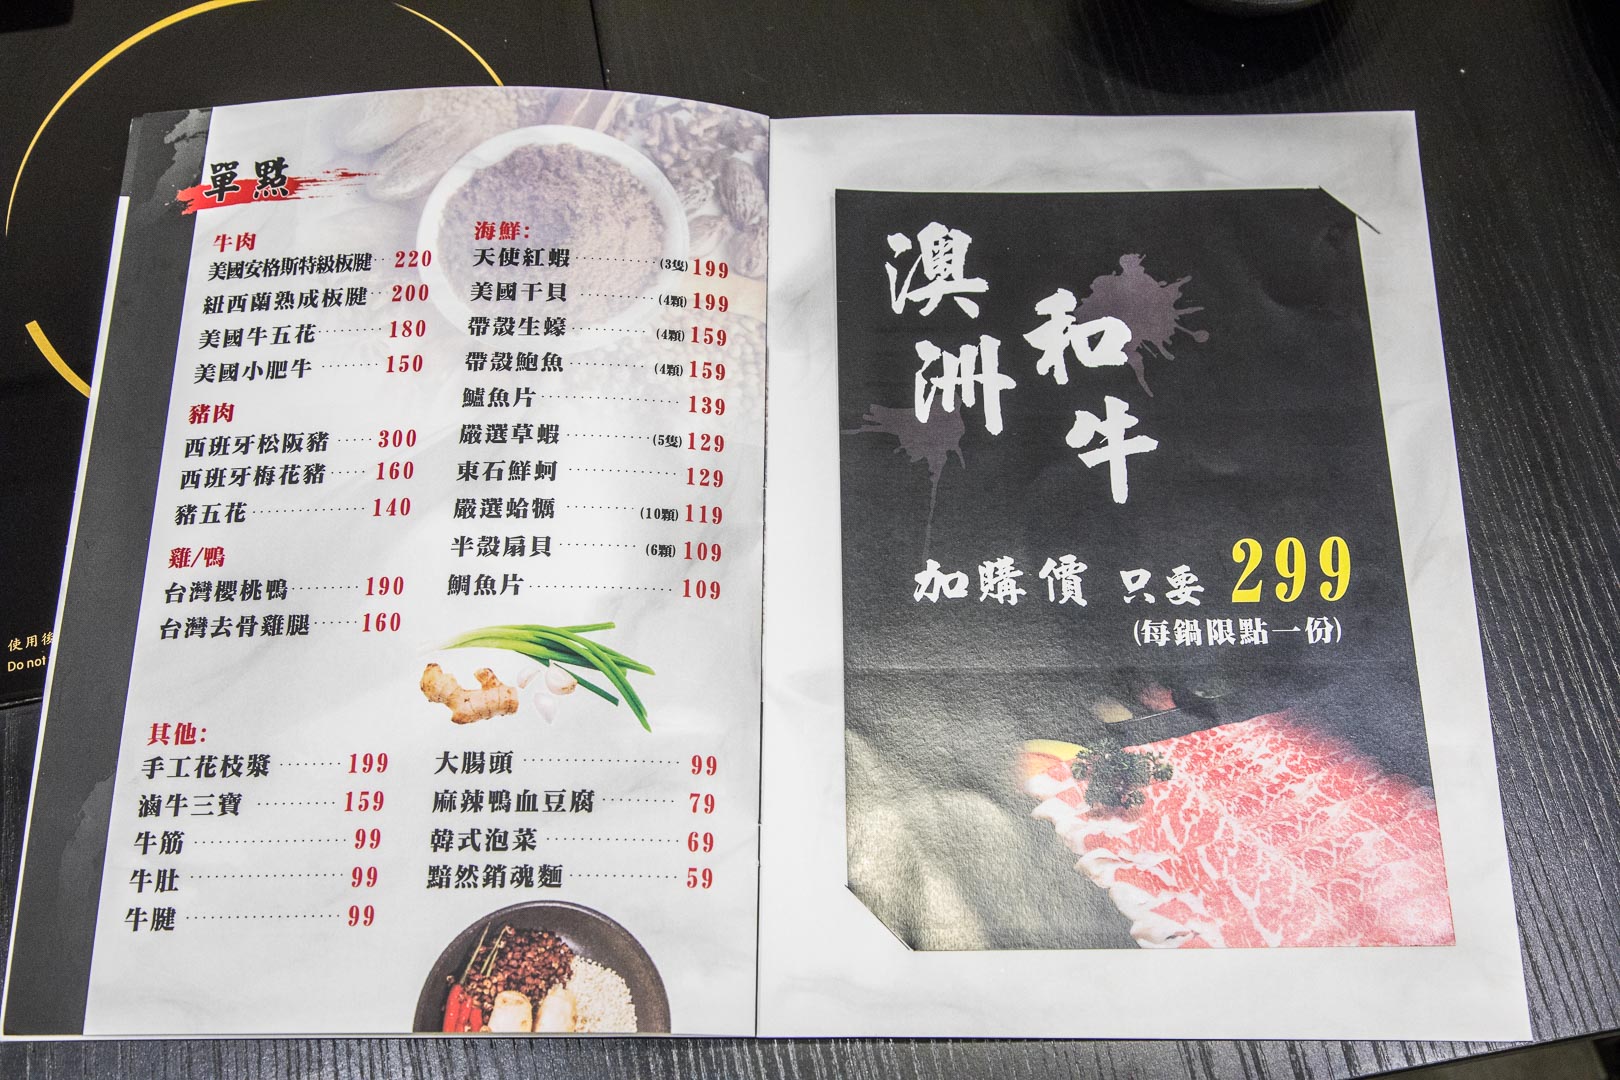 單點
牛肉
美國安格斯特級板腱 220
紐西蘭熟成板腱 200
美國牛五花 180
美國小肥牛 150
豬肉
西班牙松阪豬 300
西班牙梅花豬 160
豬五花 140
雞/鴨
台灣櫻桃鴨 190
台灣去骨雞腿 160
海鮮:
天使紅蝦 (3隻) 199
美國干貝 (4顆) 199
帶殼生蠔 (4顆) 159
帶殼鮑魚 (4顆) 159
鱸魚片 139
嚴選草蝦 (5隻) 129
東石鮮蚵 129
嚴選蛤蠣 (10顆) 119
半殼扇貝 (6顆) 109
鯛魚片 109
其他:
手工花枝漿 199
滷牛三寶 159
牛筋 99
牛肚 99
牛腱 99
大腸頭 99
麻辣鴨血豆腐 79
韓式泡菜 69
黯然銷魂麵 59
澳洲
和牛
加購價 只要 299
(每鍋限點一份)
使用後
Do not